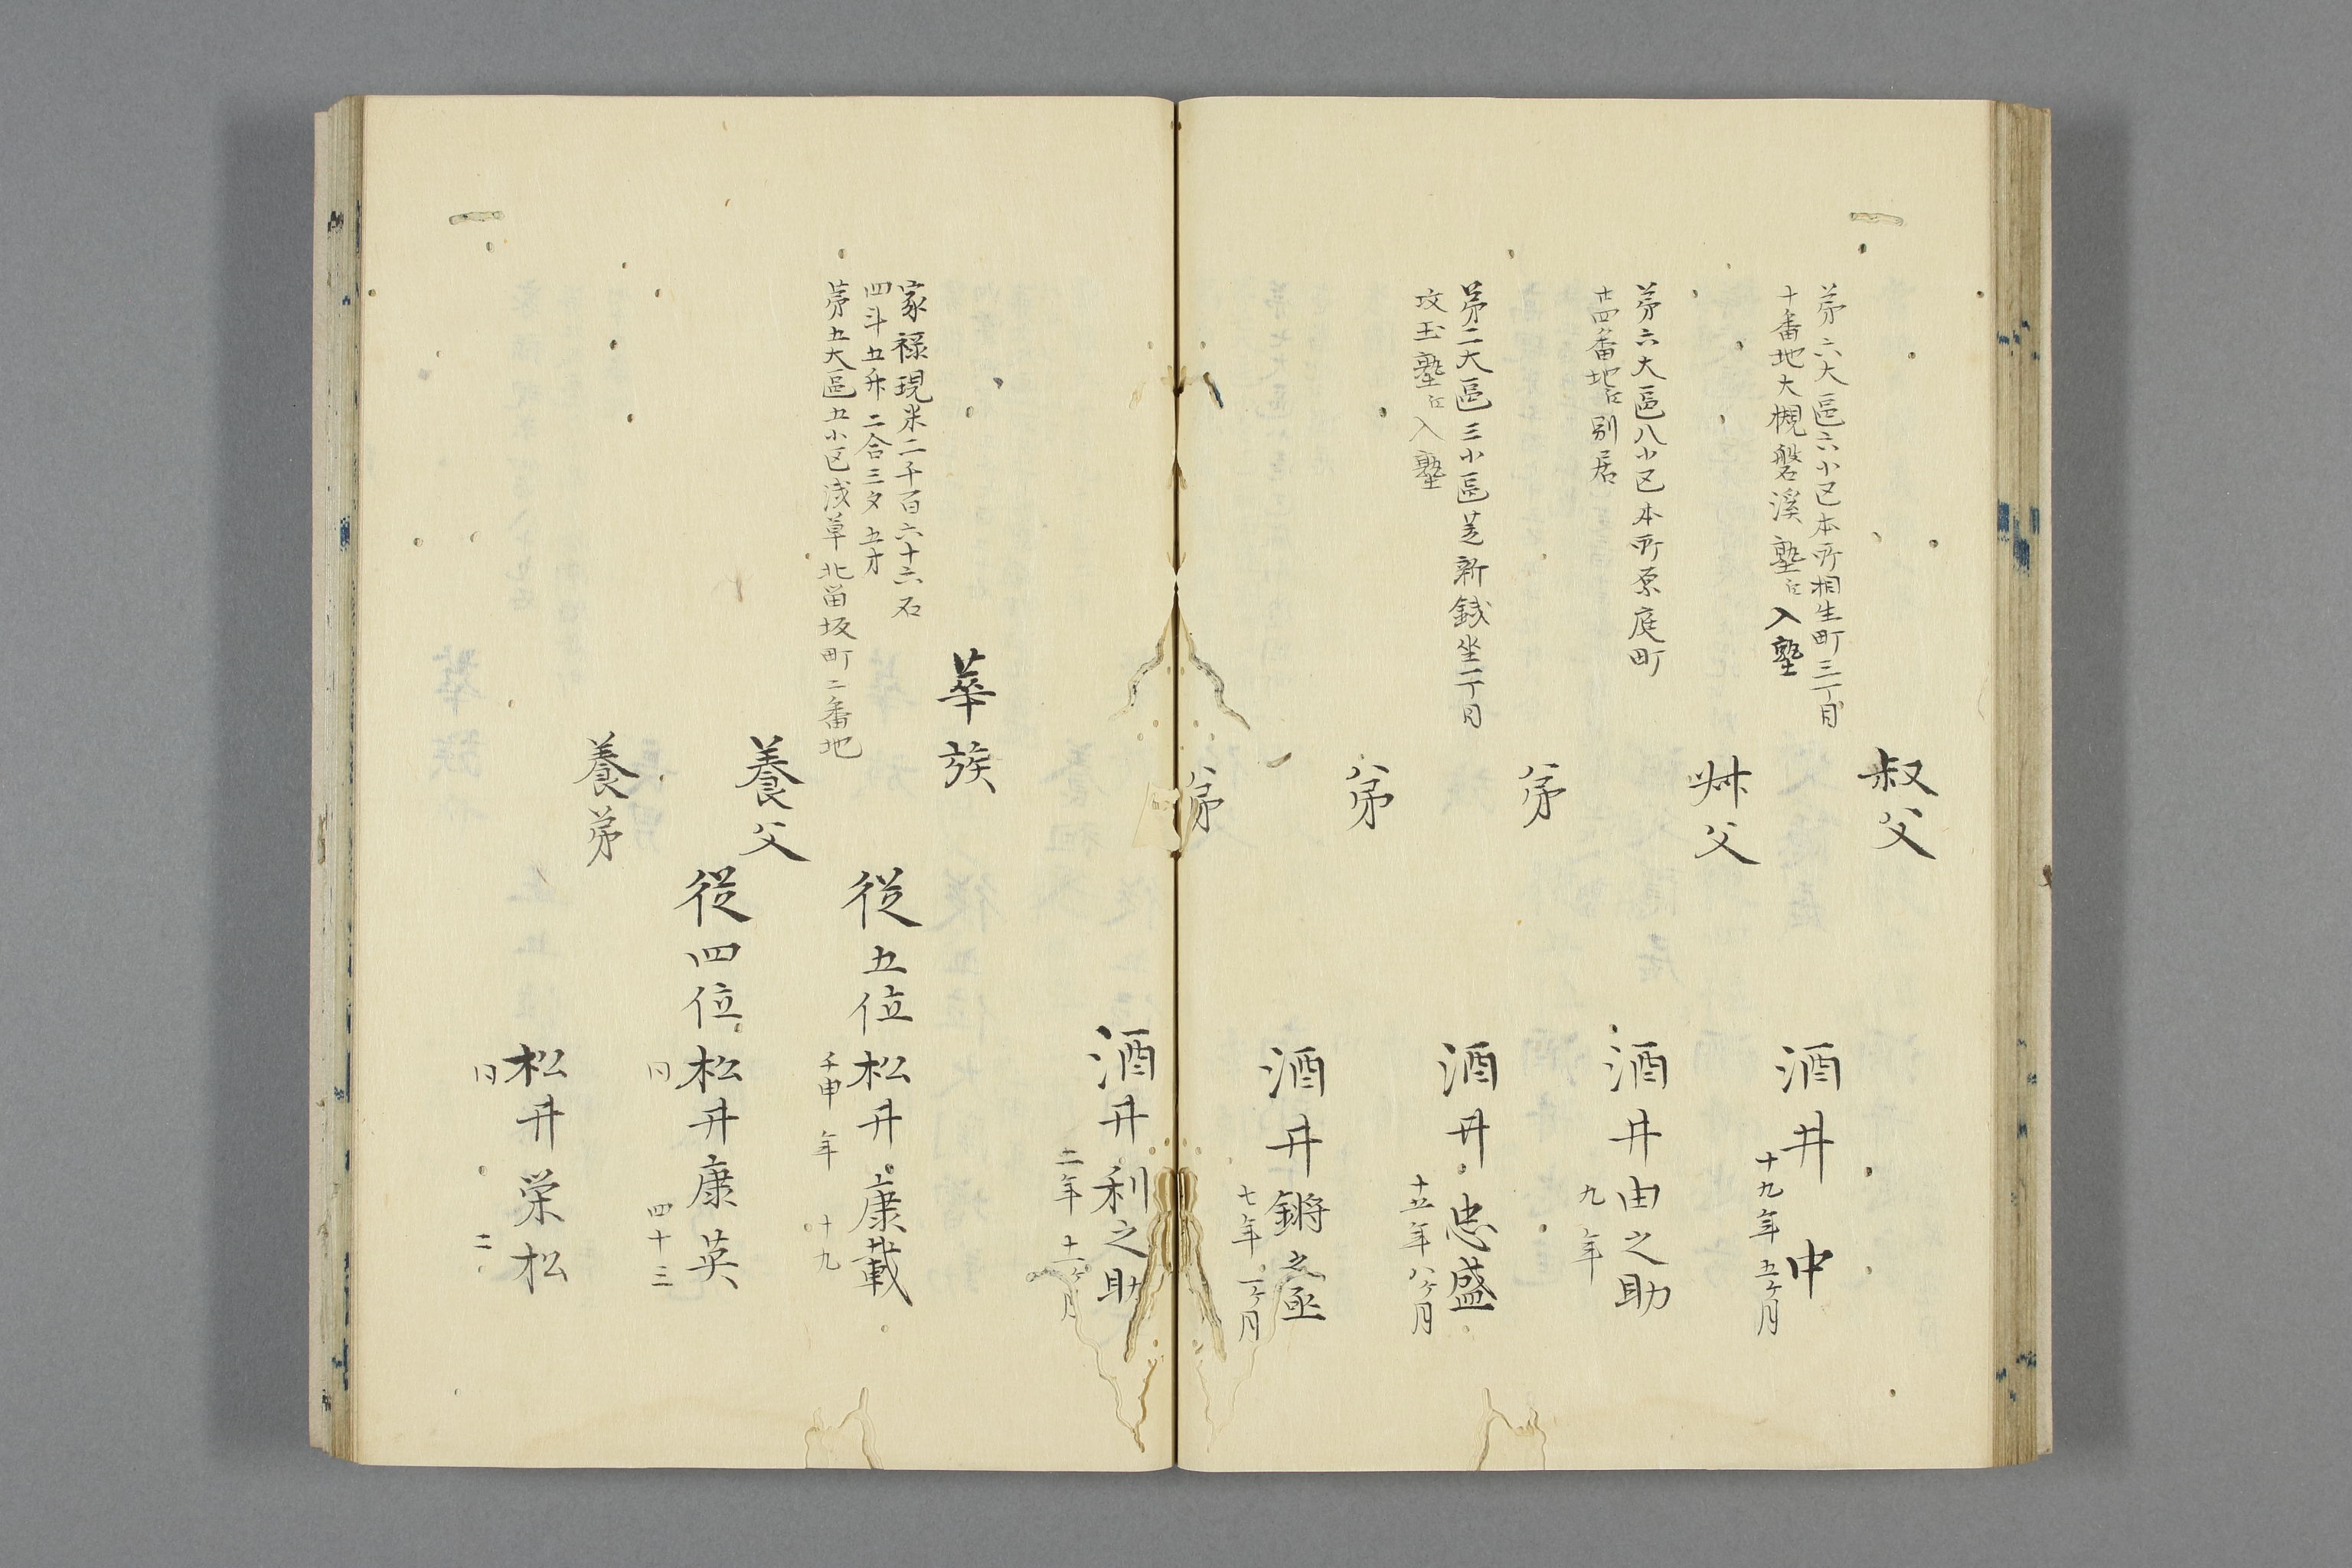 叔父
第六大區六小区本所相生町三丁目
十番地大槻磐溪塾江入塾
酒井中
十九年五ケ月
叔父
第六大區八小区本所原庭町
廿四番地江別居
酒井由之助
九年
弟
第二大區三小區芝新錢坐一丁目
攻玉塾江入塾
酒井忠盛
十五年八ケ月
弟
酒井鏘之丞
七年一ケ月
弟
酒井利之助
二年十一ケ月
華族
家禄現米二千百六十六石
四斗五升二合三夕五才
第五大區五小区浅草北苗坂町二番地
従五位松井康載
壬申年十九
養父
従四位松井康英
同四十三
養弟
松井栄松
同二